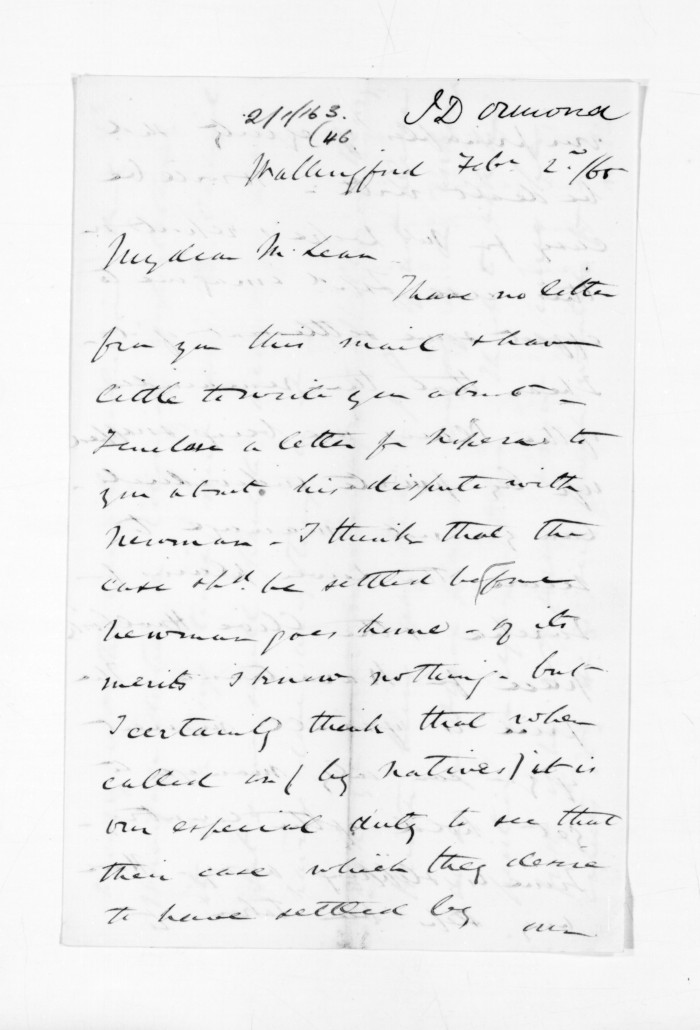 J D Ormond
Wallingford Feby 2nd/65
My dear McLean
I have no letter
from you this mail & have
little to write you about—
I enclose a letter fr to
you about his dispute with
Newman - I think that the
case shd. be settled before
Newman goes home - of its
merits I know nothing - but
I certainly think that when
called on (by Natives) it is
our especial duty to see that
their case which they desire
to have settled by
our